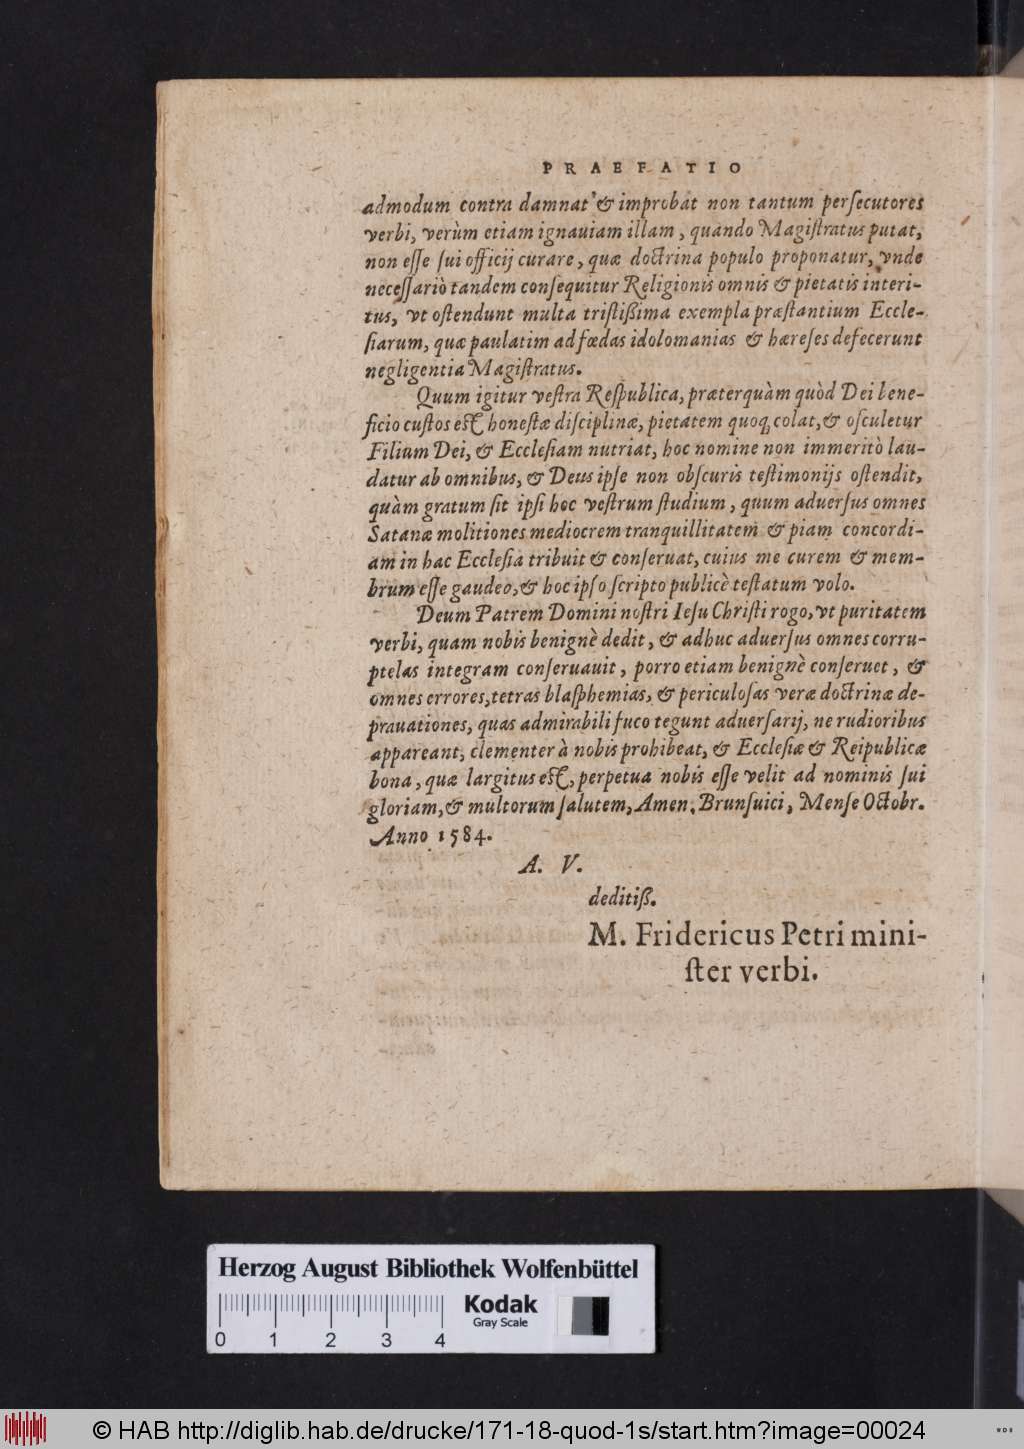 PRAEFATIO
admodum contra damnat & improbat non tantum persecutores
verbi, verùm etiam ignauiam illam, quando Magistratus putat,
non esse sui officij curare, quæ doctrina populo proponatur, vnde
necessariò tandem consequitur Religionis omnis & pietatis interi-
tus, vt ostendunt multa tristißima exempla præstantium Eccle-
siarum, quæ paulatim ad fœdas idolomanias & hæreses defecerunt
negligentia Magistratus.
Quum igitur vestra Respublica, præterquàm quòd Dei bene-
ficio custos est honestæ disciplinæ, pietatem quoq; colat, & osculetur
Filium Dei, & Ecclesiam nutriat, hoc nomine non immeritò lau-
datur ab omnibus, & Deus ipse non obscuris testimonijs ostendit,
quàm gratum sit ipsi hoc vestrum studium, quum aduersus omnes
Satanæ molitiones mediocrem tranquillitatem & piam concordi-
am in hac Ecclesia tribuit & conseruat, cuius me curem & mem-
brum esse gaudeo, & hoc ipso scripto publicè testatum volo.
Deum Patrem Domini nostri Iesu Christi rogo, vt puritatem
verbi, quam nobis benignè dedit, & adhuc aduersus omnes corru-
ptelas integram conseruauit, porro etiam benignè conseruet, &
omnes errores, tetras blasphemias, & periculosas veræ doctrinæ de-
prauationes, quas admirabili fuco tegunt aduersarij, ne rudioribus
appareant, clementer à nobis prohibeat, & Ecclesiæ & Reipublicæ
bona, quæ largitus est, perpetua nobis esse velit ad nominis sui
gloriam, & multorum salutem, Amen. Brunsuici, Mense Octobr.
Anno 1584.
A. V.
deditiß.
M. Fridericus Petri mini-
ster verbi.
Herzog August Bibliothek Wolfenbüttel
Kodak
Gray Scale
0 1 2 3 4
© HAB http://diglib.hab.de/drucke/171-18-quod-1s/start.htm?image=00024